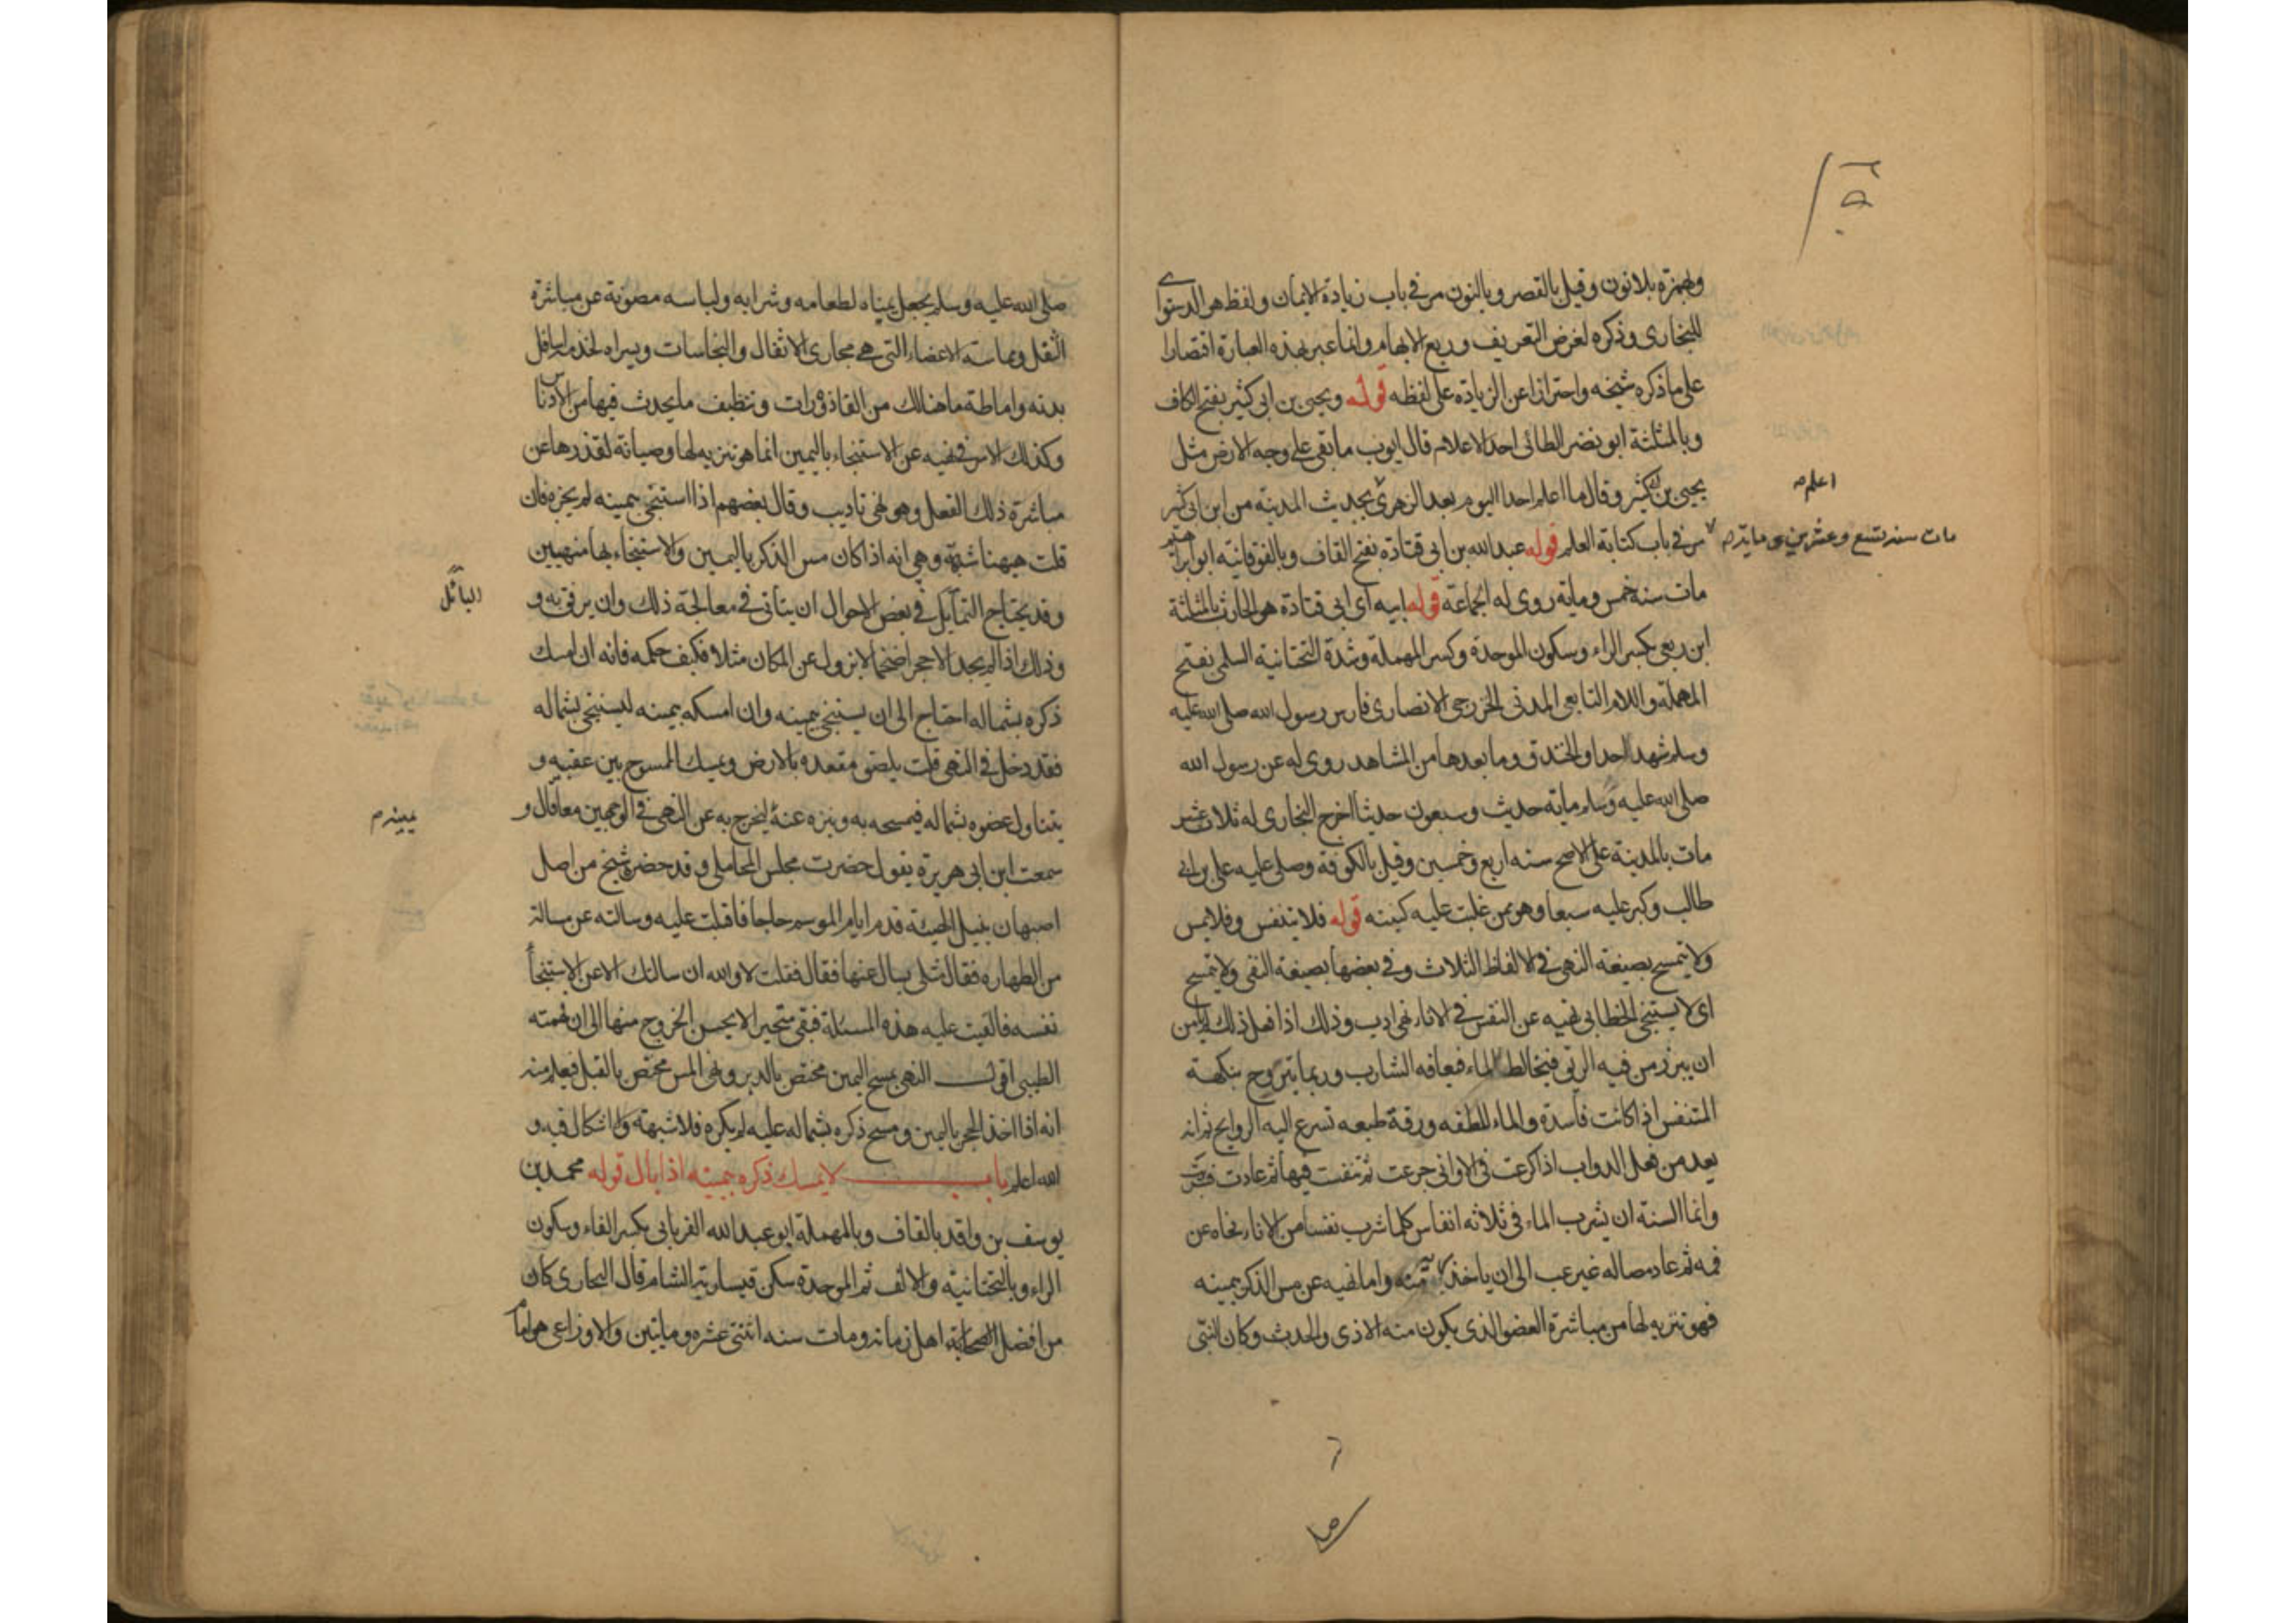 وبهمزة بلا نون وقيل بالقصر وبالنون مر في باب زيادة الايمان ولفظ هو الدستوائي
للبخارى وذكره لغرض التعريف ورفع الابهام وانما عبر بهذه العبارة اقتصارا
على ما ذكره شيخه واحترازا عن الزيادة على لفظه قوله ويحيى بن ابى كثير بفتح الكاف
وبالمثلثة ابو نضر الطائى احد الاعلام قال ايوب ما بقى على وجه الارض مثل
يحيى بن كثير وقال ما اعلم احدا اليوم بعد الزهرى بحديث المدينة من ابن ابى كثير
اعلم
مات سنة تسع وعشرين ومايته
مر فى باب كتابة العلم قوله عبد الله بن ابى قتادة بفتح القاف وبالفوقانية ابو ابراهيم
مات سنة خمس وماية روى له الجماعة قوله ابيه اى ابى قتادة هو الحارث بالمثلثة
ابن ربعى بكسر الراء وسكون الموحدة وكسر المهملة وشدة التحتانية السلمى بفتح
المهملة واللام التابعى المدنى الخزرجى الانصارى فارس رسول الله صلى الله عليه
وسلم شهد احدا والخندق وما بعدها من المشاهد روى له عن رسول الله
صلى الله عليه وسلم ماية حديث وسبعون حديثا اخرج البخارى له ثلاث عشر
مات بالمدينة على الاصح سنه اربع وخمسين وقيل بالكوفة وصلى عليه على بن ابى
طالب وكبر عليه سبعا وهو ممن غلبت عليه كنيته قوله فلا يتنفس وفلا يمس
ولا يتمسح بصيغة النهى فى الالفاظ الثلاث وفى بعضها بصيغة النفى ولا يتمسح
اى لا يستنجى الخطابى نهيه عن التنفس فى الاناء نهى ادب وذلك اذا فعل ذلك لم يامن
ان يبرز من فيه الريق فيخالط الماء فيعافه الشارب وربما يتروح بنكهة
المتنفس اذا كانت فاسدة والماء للطفه ورقة طبعه تسرع اليه الروايح ثم انه
يعد من فعل الدواب اذا كرعت فى الاوانى جرعت ثم تنفست فيها ثم عادت فشربت
وانما السنة ان يشرب الماء فى ثلاثه انفاس كلما شرب نفسا من الاناء نحاه عن
فمه ثم عاد مصاله غير عب الى ان ياخذ منه واما نهيه عن مس الذكر بيمينه
فهو تنزيه لها من مباشرة العضو الذى يكون منه الاذى والحدث وكان النبى
صلى الله عليه وسلم يجعل يمناه لطعامه وشرابه ولباسه مصونة عن مباشرة
الثفل ومماسة الاعضاء التى هى مجارى الاثفال والنجاسات ويسراه لخدمة اسافل
بدنه واماطة ما هنالك من القاذورات وتنظيف ما يحدث فيها من الادناس
وكذلك الامر فى نهيه عن الاستنجاء باليمين انما هو تنزيه لها وصيانة لقدرها عن
مباشرة ذلك الفعل وهو نهى تاديب وقال بعضهم اذا استنجى بيمينه لم يجزه فان
قلت ههنا شبهة وهى انه اذا كان مس الذكر باليمين والاستنجاء بها منهيين
وقد يحتاج البائل فى بعض الاحوال ان يتانى فى معالجة ذلك وان يرفق به و
البائل
وذلك اذا لم يجد الا حجرا ضخما لا يزول عن المكان مثلا فكيف حكمه فانه ان امسك
ذكره بشماله احتاج الى ان يستنجى بيمينه وان امسكه بيمينه ليستنجى بشماله
فقد دخل فى النهى قلت يلصق مقعده بالارض ويمسك الممسوح بين عقبيه و
يتناول عضوه بشماله فيمسحه به وينزه عنه ليخرج به عن النهى فى الوجهين معا قال و
يمينه م
سمعت ابن ابى هريرة يقول حضرت مجلس المحاملى وقد حضره شيخ من اهل
اصبهان نبيل الهيئة قدم ايام الموسم حاجا فاقبلت عليه وسالته عن مسالة
من الطهاره فقال مثلى يسال عنها فقال فقلت لا والله ان سالتك الا عن الاستنجاء
نفسه فالقيت عليه هذه المسئلة فبقى متحيرا لا يحسن الخروج منها الى ان فهمته
الطيبى اقول النهى بمسح اليمين مختص بالدبر ونهى المس مختص بالقبل فيعلم منه
انه اذا اخذ الحجر باليمين ومسح ذكره بشماله عليه لم يكره فلا شبهة ولا اشكال فيه و
الله اعلم باب لا يمسك ذكره بيمينه اذا بال قوله محمد بن
يوسف بن واقد بالقاف وبالمهملة ابو عبد الله الفريابى بكسر الفاء وسكون
الراء وبالتحتانية والالف ثم الموحدة سكن قيسارية الشام قال البخارى كان
من افضل اهل زمانه ومات سنه اثنتى عشره وماتين والاوزاعى هو امام